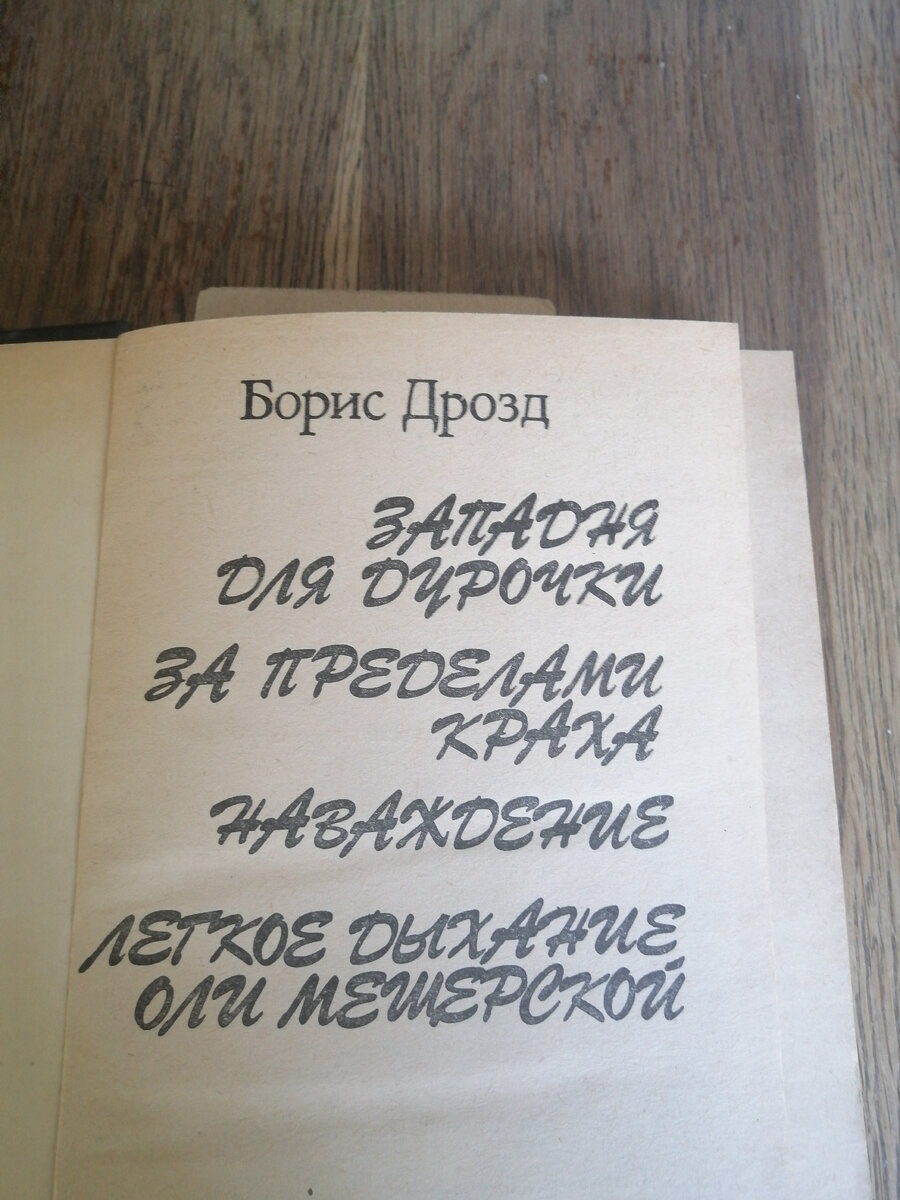 Борис Дрозд
ЗАПАДНЯ
ДЛЯ ДУРОЧКИ
ЗА ПРЕДЕЛАМИ
КРАХА
НАВАЖДЕНИЕ
ЛЕГКОЕ ДЫХАНИЕ
ОЛИ МЕЩЕРСКОЙ